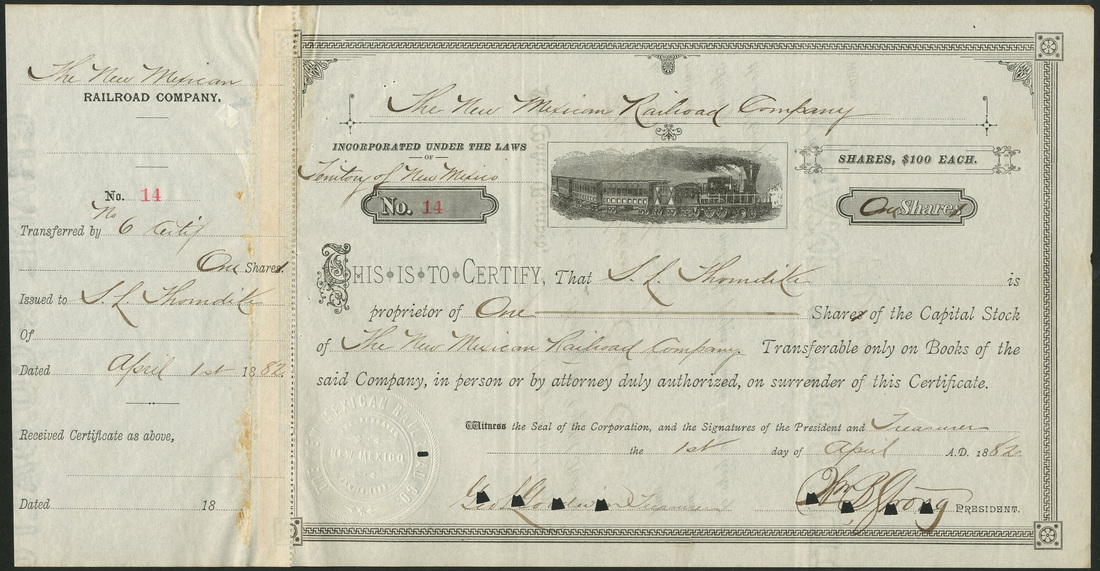 The New Mexican
RAILROAD COMPANY.
No. 14
No
Transferred by 6 Certif
One Share
Issued to S. L. Thorndike
Of
Dated April 1st 1882
Received Certificate as above,
Dated 18
The New Mexican Railroad Company
INCORPORATED UNDER THE LAWS
OF
Territory of New Mexico
No. 14
SHARES, $100 EACH.
One Shares
THIS IS TO CERTIFY, That S. L. Thorndike is
proprietor of One Shares of the Capital Stock
of The New Mexican Railroad Company Transferable only on Books of the
said Company, in person or by attorney duly authorized, on surrender of this Certificate.
Witness the Seal of the Corporation, and the Signatures of the President and Treasurer
the 1st day of April A.D. 1882
Geo. L. Goodwin Treasurer
Wm B Strong PRESIDENT.
NEW MEXICO